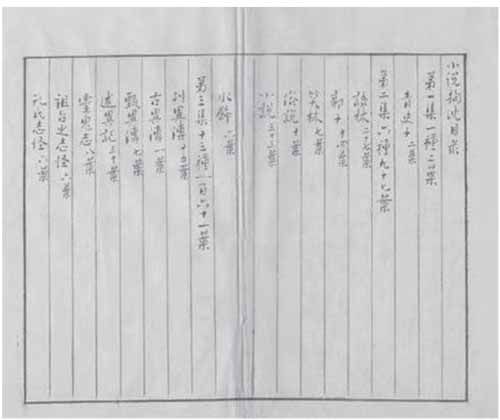 小说钩沈目录
第一集一種二葉
青史子二葉
第二集六種九十七葉
語林二十七葉
郭子十四葉
笑林七葉
俗說十葉
小説三三葉
水飾六葉
第三集十三種一百六十一葉
列異傳十五葉
古異傳一葉
甄異傳七葉
述異記三十葉
靈鬼志八葉
祖台之志怪六葉
孔氏志怪六葉